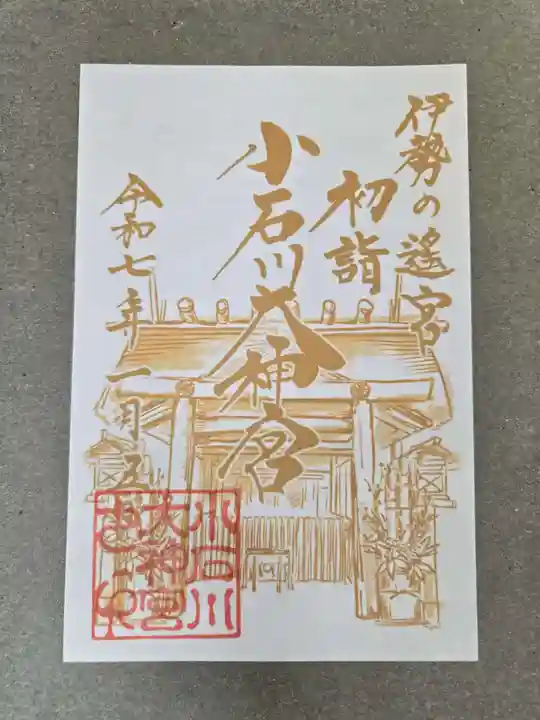 伊勢の遙宮
初詣
小石川大神宮
令和七年一月五
小石川
大神宮